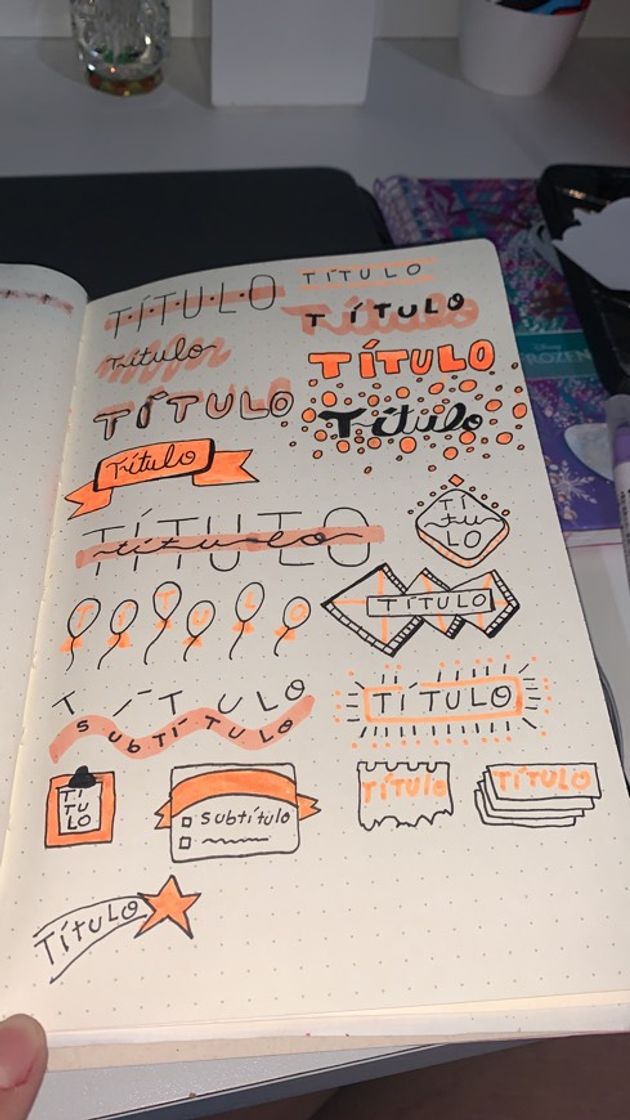 TÍTULO
TÍTULO
TÍTULO
Título
Título
TÍTULO
TÍTULO
Título
Título
TÍTULO
título
TÍ
tu
LO
TÍTULO
TÍTULO
TÍTULO
SUBTÍTULO
TÍTULO
TÍ
TU
LO
Subtítulo
TÍTULO
TÍTULO
TÍTULO
Disney
FROZEN